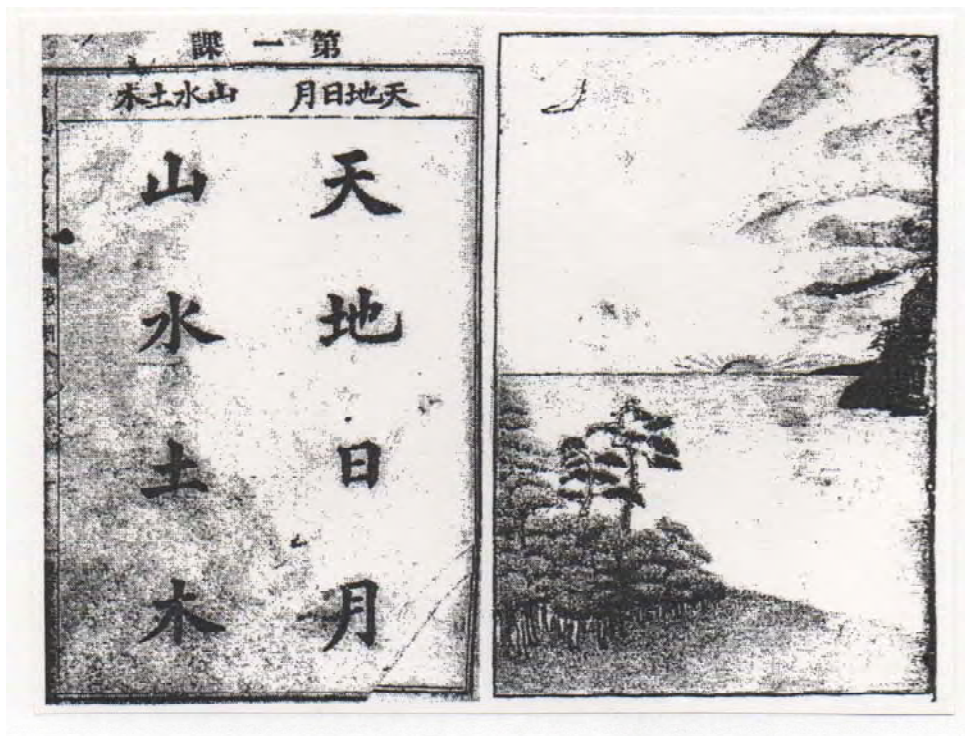 第一課
天地日月 山水土木
天地日月
山水土木